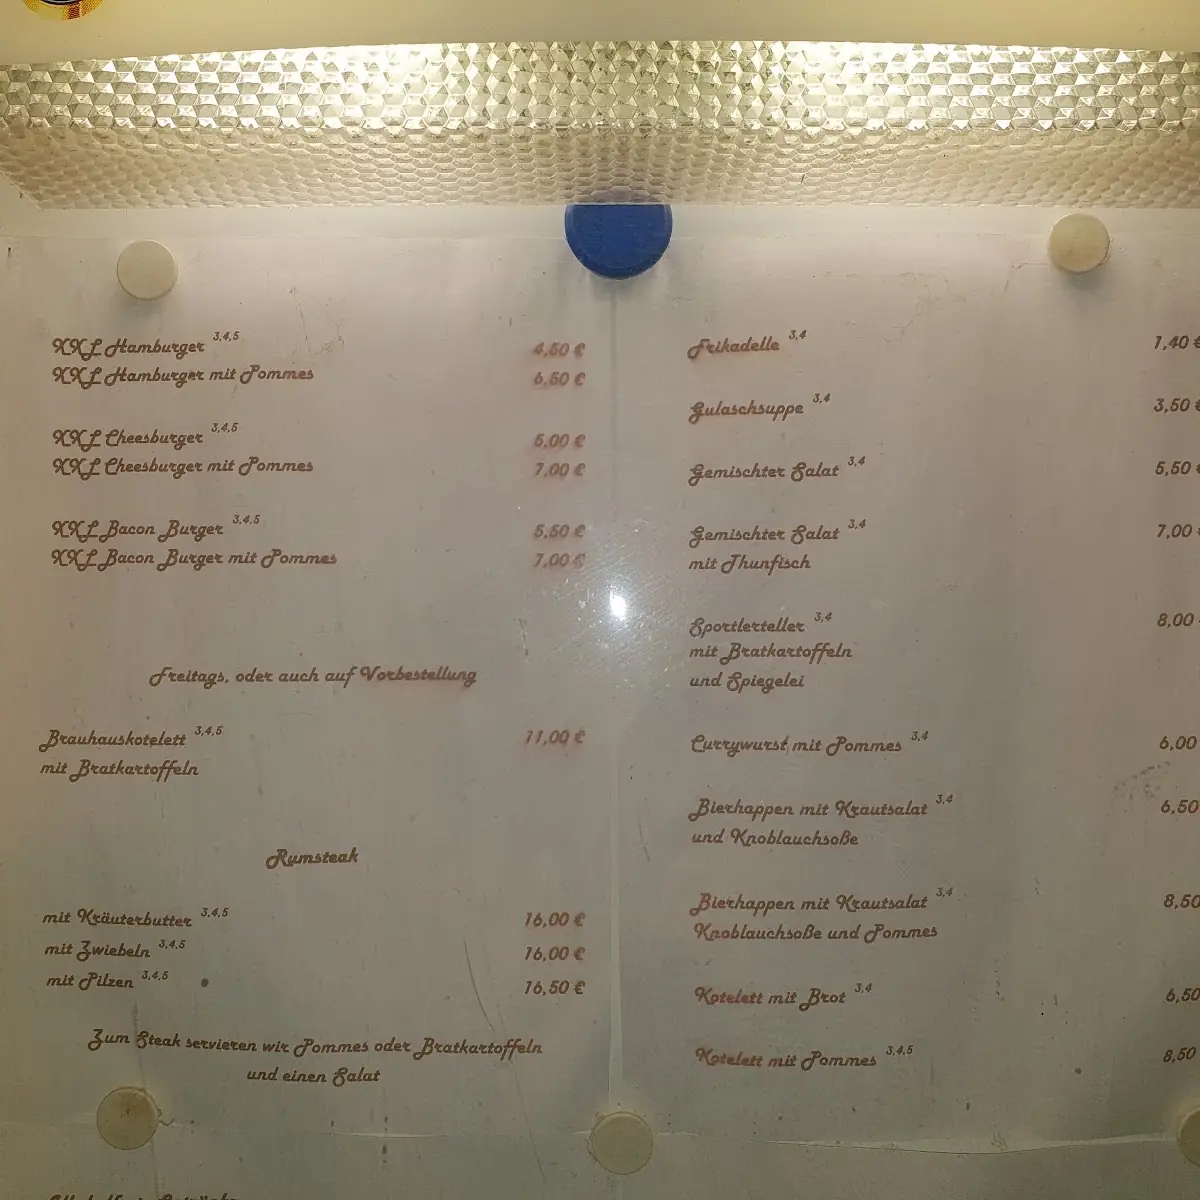 XXL Hamburger 3,4,5 4,50 €
XXL Hamburger mit Pommes 6,50 €
XXL Cheesburger 3,4,5 5,00 €
XXL Cheesburger mit Pommes 7,00 €
XXL Bacon Burger 3,4,5 5,50 €
XXL Bacon Burger mit Pommes 7,00 €
Freitags, oder auch auf Vorbestellung
Brauhauskotelett 3,4,5 11,00 €
mit Bratkartoffeln
Rumsteak
mit Kräuterbutter 3,4,5 16,00 €
mit Zwiebeln 3,4,5 16,00 €
mit Pilzen 3,4,5 16,50 €
Zum Steak servieren wir Pommes oder Bratkartoffeln
und einen Salat
Frikadelle 3,4 1,40 €
Gulaschsuppe 3,4 3,50 €
Gemischter Salat 3,4 5,50 €
Gemischter Salat 3,4 7,00
mit Thunfisch
Sportlerteller 3,4 8,00
mit Bratkartoffeln
und Spiegelei
Currywurst mit Pommes 3,4 6,00
Bierhappen mit Krautsalat 3,4 6,50
und Knoblauchsoße
Bierhappen mit Krautsalat 3,4 8,50
Knoblauchsoße und Pommes
Kotelett mit Brot 3,4 6,50
Kotelett mit Pommes 3,4,5 8,50